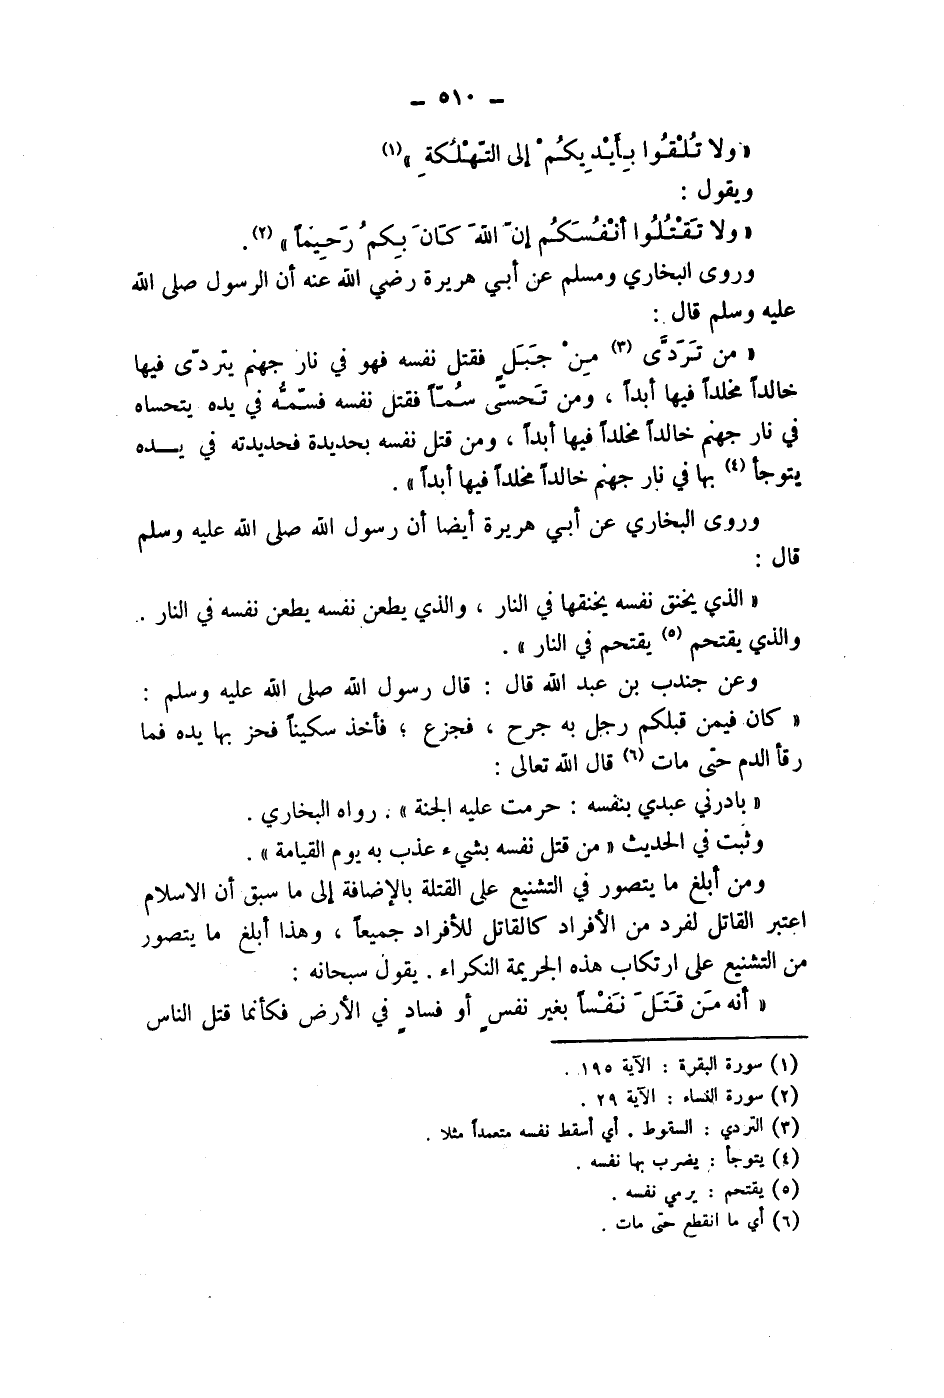 – ٥١٠ –
« ولا تُلْقُوا بِأَيْدِيكُمْ إلى التّهْلُكةِ »(١)
ويقول :
« ولا تَقْتُلُوا أنْفُسَكُم إنّ اللهَ كَانَ بِكمُ رَحِيمَاً » (٢) .
وروى البخاري ومسلم عن أبي هريرة رضي الله عنه أن الرسول صلى الله
عليه وسلم قال :
« من تَرَدَّى (٣) مِنْ جَبَلٍ فقتل نفسه فهو في نار جهنم يتردّى فيها
خالداً مخلداً فيها أبداً ، ومن تَحسىّ سُمّاً فقتل نفسه فسّمُّه في يده يتحساه
في نار جهنم خالداً مخلداً فيها أبداً ، ومن قتل نفسه بحديدة فحديدته في يــده
يتوجأ (٤) بها في نار جهنم خالداً مخلداً فيها أبداً » .
وروى البخاري عن أبي هريرة أيضا أن رسول الله صلى الله عليه وسلم
قال :
« الذي يخنق نفسه يخنقها في النار ، والذي يطعن نفسه يطعن نفسه في النار .
والذي يقتحم (٥) يقتحم في النار » .
وعن جندب بن عبد الله قال : قال رسول الله صلى الله عليه وسلم :
« كان فيمن قبلكم رجل به جرح ، فجزع ؛ فأخذ سكيناً فحز بها يده فما
رقأ الدم حتى مات (٦) قال الله تعالى :
« بادرني عبدي بنفسه : حرمت عليه الجنة » . رواه البخاري .
وثبت في الحديث « من قتل نفسه بشيء عذب به يوم القيامة » .
ومن أبلغ ما يتصور في التشنيع على القتلة بالإضافة إلى ما سبق أن الاسلام
اعتبر القاتل لفرد من الأفراد كالقاتل للأفراد جميعاً ، وهذا أبلغ ما يتصور
من التشنيع على ارتكاب هذه الجريمة النكراء . يقول سبحانه :
« أنه مَن قَتَلَ نَفْسَاً بغير نفسٍ أو فسادٍ في الأرض فكأنما قتل الناس
(١) سورة البقرة : الآية ١٩٥ .
(٢) سورة النساء : الآية ٢٩ .
(٣) التردي : السقوط . أي أسقط نفسه متعمداً مثلا .
(٤) يتوجأ : يضرب بها نفسه .
(٥) يقتحم : يرمي نفسه .
(٦) أي ما انقطع حتى مات .